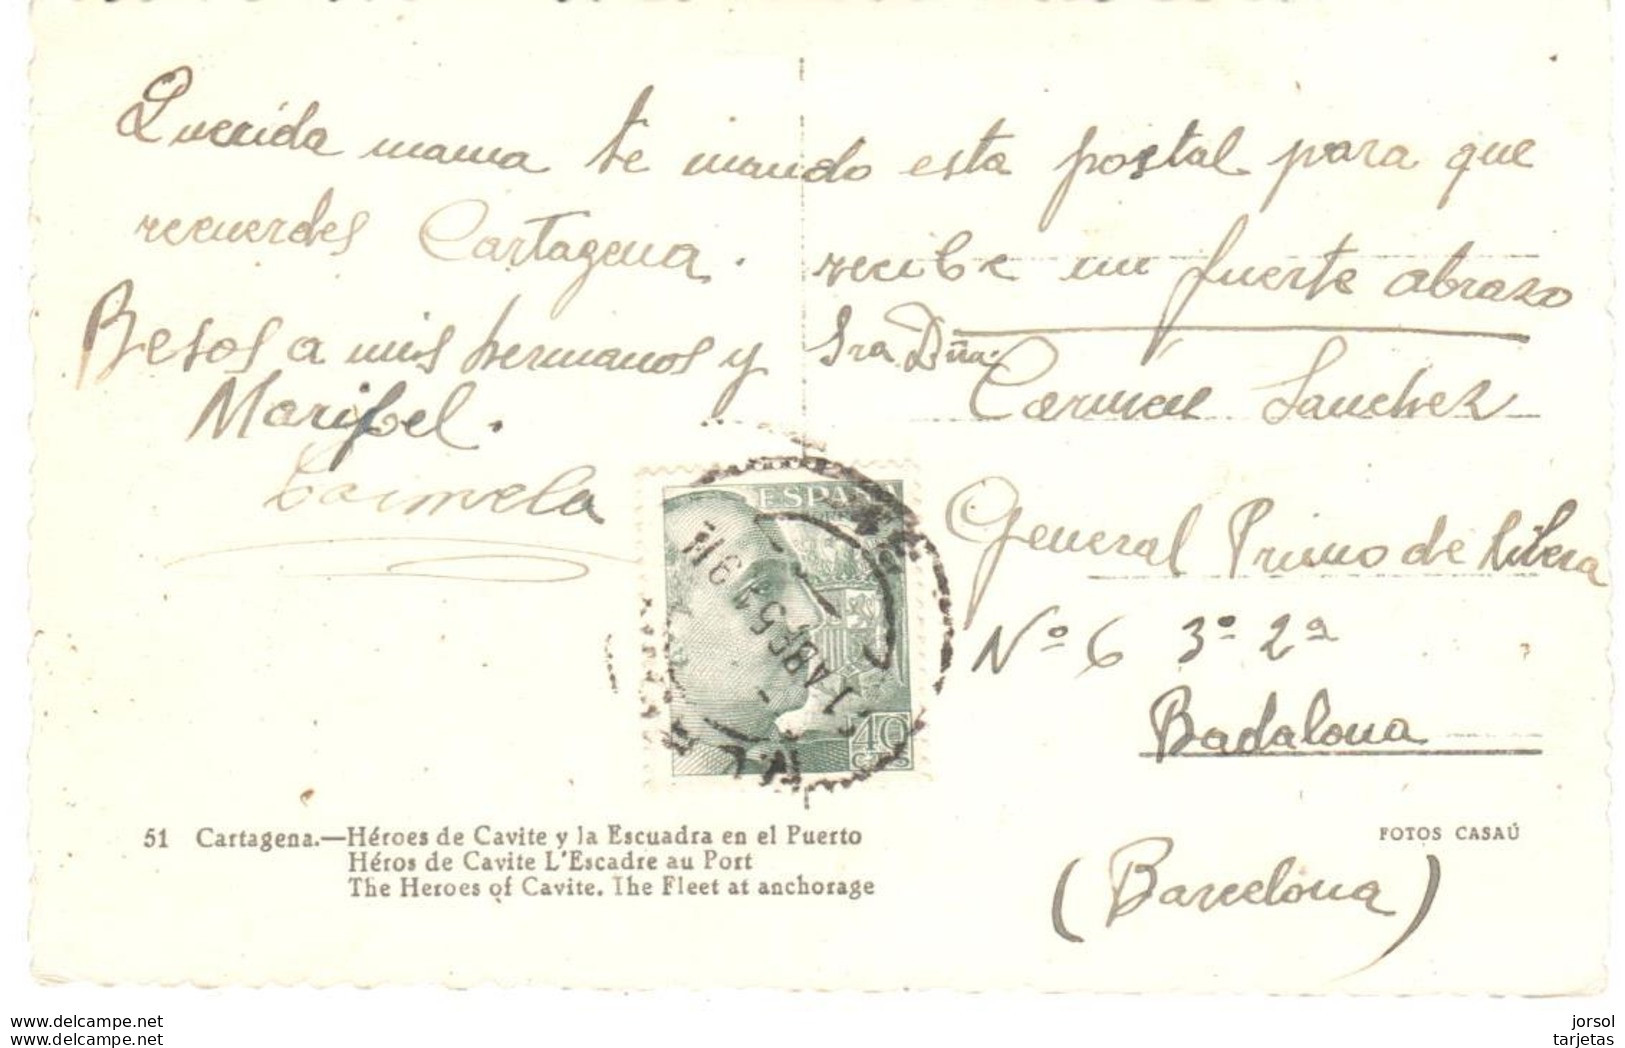 Querida mama te mando esta postal para que
recuerdes Cartagena. recibe un fuerte abrazo
Besos a mis hermanos y
Maribel.
Carmela
Sra Dña.
Carmen Sanchez
General Primo de Ribera
Nº 6 3º 2ª
Badalona
(Barcelona)
ESPAÑA
CORREOS
40
CTS
ABR 5
51 Cartagena.—Héroes de Cavite y la Escuadra en el Puerto
Héros de Cavite L'Escadre au Port
The Heroes of Cavite. The Fleet at anchorage
FOTOS CASAÚ
www.delcampe.net
www.delcampe.net
jorsol
tarjetas